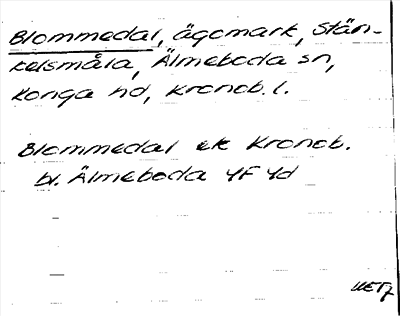 Blommedal, ägomark, Stän-
kelsmåla, Älmeboda sn,
Konga hd, Kronob. l.
Blommedal ek Kronob.
bl. Älmeboda 4F 4d